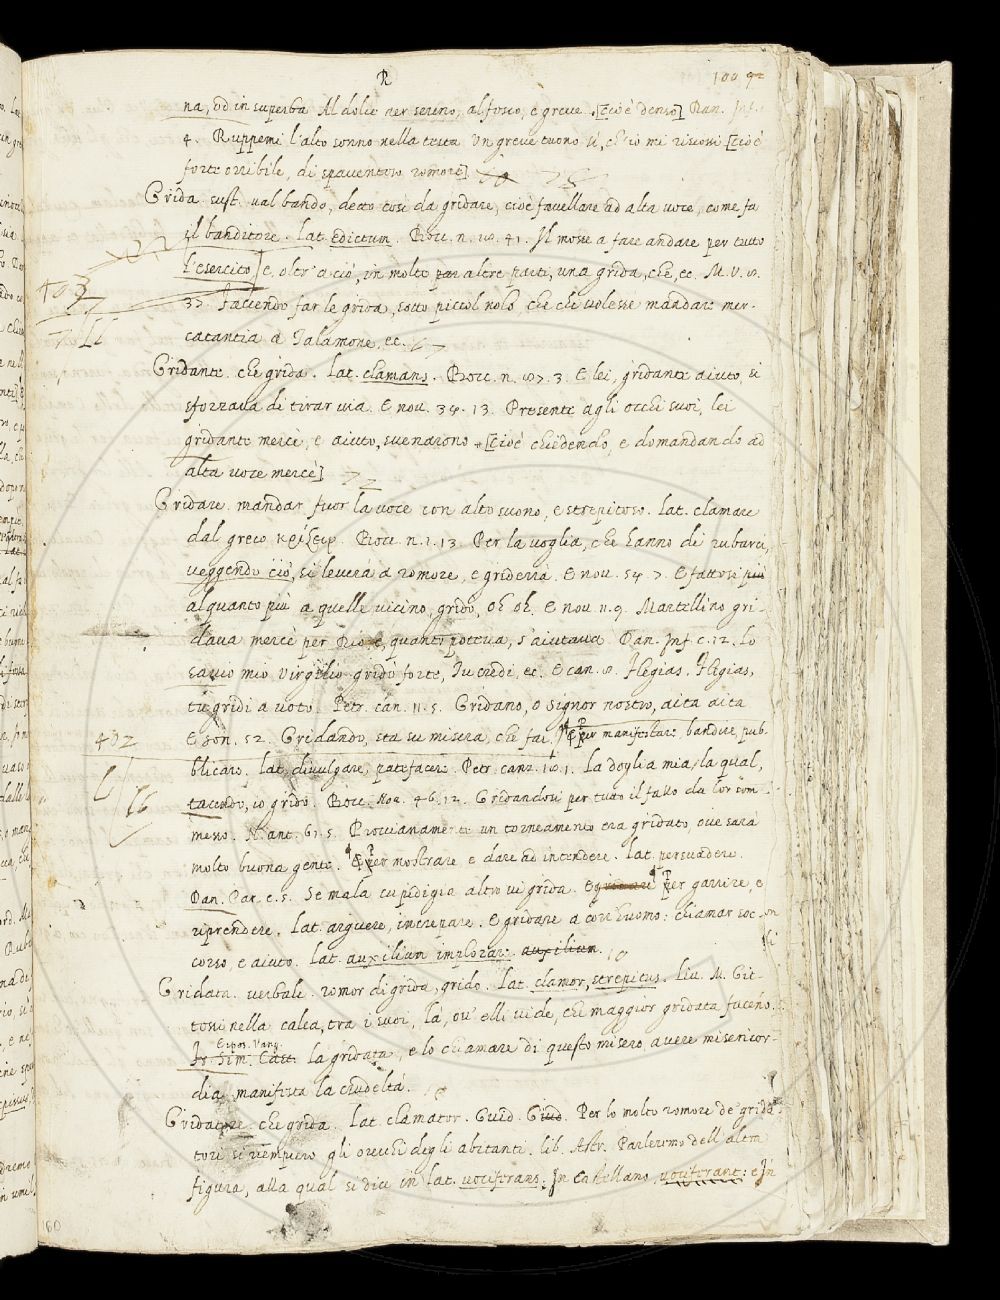 R
na, od in superba Al dolce aer sereno, al fosco, e greve. [cioè denso] Dan. Inf.
4. Ruppemi l'alto sonno nella testa Un greve tuono sì, ch'io mi riscossi [cioè
forte orribile, di spaventoso romore]
Grida. sust. val bando, detto così da gridare, cioè favellare ad alta voce, come fa
il banditore. Lat. edictum. Bocc. n. 18. 41. Il mosse a fare andare per tutto
l'esercito] e, oltr'a ciò, in molte altre parti, una grida, che, ec. M. V. 8.
37. Faccendo far le grida, sotto piccol nolo, che chi volesse mandare mer-
catantia a Talamone, ec.
Gridante. che grida. Lat. clamans. Bocc. n. 87. 3. E lei, gridante aiuto, si
sforzava di tirar via. E nov. 34. 13. Presente agli occhi suoi, lei
gridante mercè, e aiuto, svenarono [cioè chiedendo, e domandando ad
alta voce mercè]
Gridare. mandar fuor la voce con alto suono, e strepitoso. Lat. clamare
dal greco κρίζειρ. Bocc. n. 1. 13. Per la voglia, che hanno di rubarci,
veggendo ciò, si leverà a romore, e griderrà. E nov. 54. 7. E fattosi più
alquanto più a quelle vicino, gridò, oh oh, E nov. 11. 9. Martellino gri-
dava mercè per Dio, e, quanto poteva, s'aiutava Dan. Inf. c. 12. Lo
savio mio Virgilio gridò forte, Tu credi, ec. E can. 8. Flegias, Flegias,
tu gridi a voto. Petr. can. 11. 5. Gridano, o signor nostro, aita aita
E son. 52. Gridando, sta su misera, che fai? per manifestare bandire, pub-
blicare. Lat. divulgare, patefacere. Petr. canz. 18. 1. La doglia mia, la qual,
tacendo, io grido. Bocc. Nov. 46. 12. Gridandosi per tutto il fallo da lor com
messo. N. ant. 61. 5. Prossianamente un torneamento era gridato, ove sarà
molto buona gente. per mostrare e dare ad intendere. Lat. persuadere.
Dan. Par. c. 5. Se mala cupidigia altro vi grida. E gridare per garrire, e
riprendere. Lat. arguere, increpare. E gridare a corr'huomo: chiamar soc-
corso, e aiuto. Lat. auxilium implorare. auxilium.
Gridata. verbale. romor di grida, grido. Lat. clamor, strepitus. Liv. M. Git-
tossi nella calca, tra i suoi, là, ov' elli vide, che maggior gridata faceño.
Espos. Vang.
Fr. Sim. Cast. La gridata, e lo chiamare di questo misero, avere misericor-
dia manifesta la crudeltà.
Gridatore. che grida. Lat. clamator. Guid. Giud. Per lo molto romore de' grida-
tori si rempiero gli orecchi degli abitanti. lib. Astr. Parleremo dell'altra
figura, alla qual si dice in Lat. vociferans. In Castellano, vociferant: e In